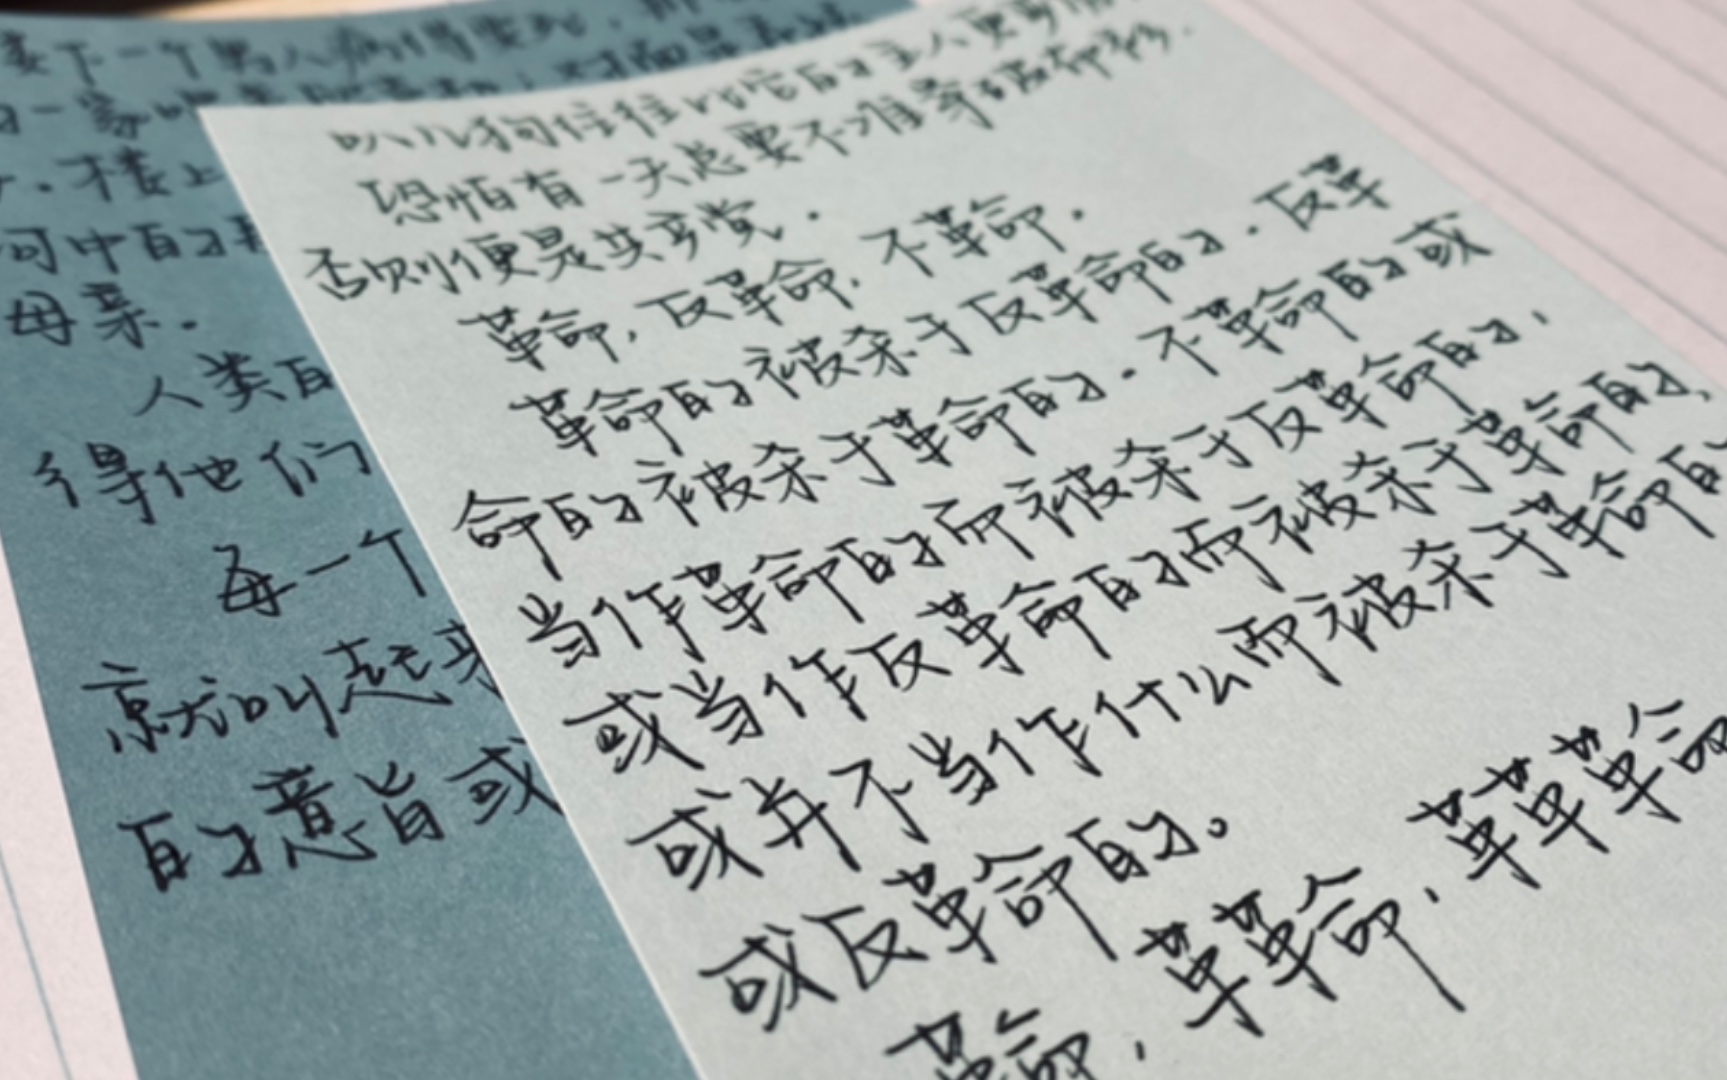 楼下一个男人病得要死，
的一家唱
。楼上
河中的
母亲。
人类的
得他们
每一个
就叫起来
的意旨或
叭儿狗往往比它的主人更
恐怕有一天总要不准穿破布衫，
否则便是共产党。
革命，反革命，不革命。
革命的被杀于反革命的。反革
命的被杀于革命的。不革命的或
当作革命的而被杀于反革命的，
或当作反革命的而被杀于革命的，
或并不当作什么而被杀于革命的
或反革命的。
革命，革革命，革革革命